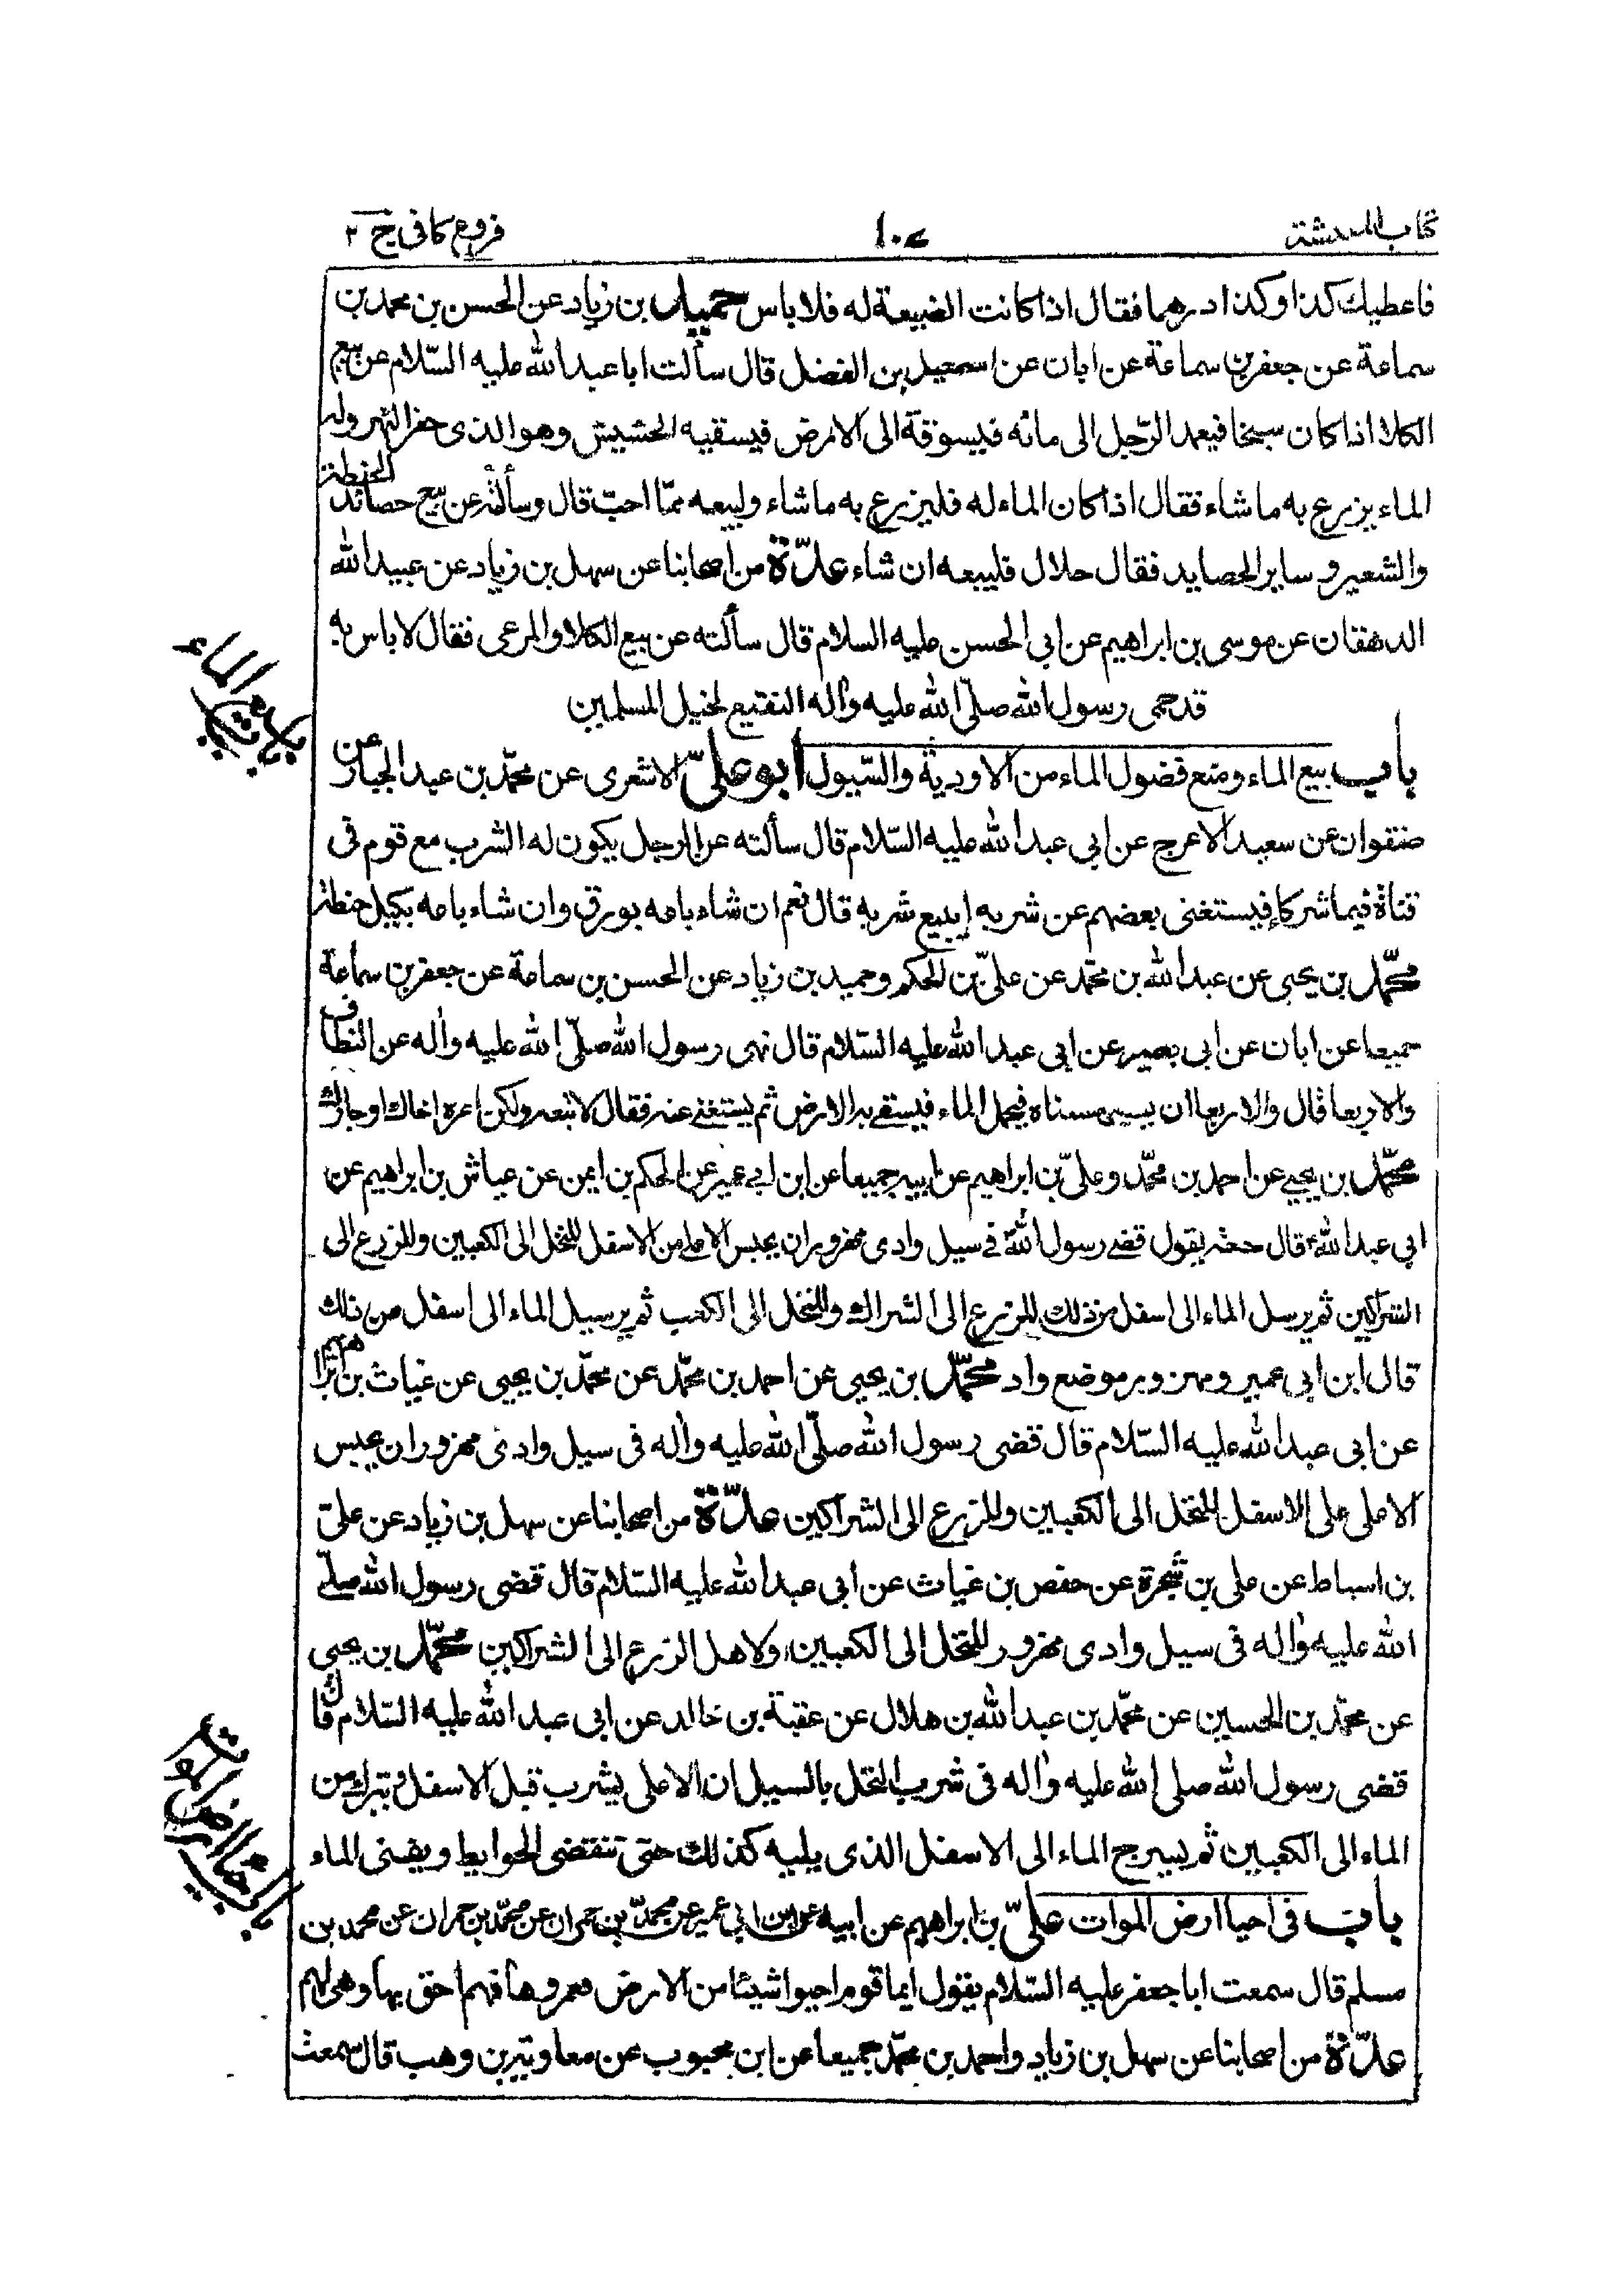 كتاب المعيشة
١٠٤
فروع كافى ج ٢
فاعطيك كذا وكذا درهما فقال اذا كانت الضيعة له فلا باس حميد بن زياد عن الحسن بن محمد بن
سماعة عن جعفر بن سماعة عن ابان عن اسمعيل بن الفضل قال سألت ابا عبد الله عليه السّلام عن بيع
الكلاا اذا كان سيحا فيعمد الرّجل الى مائه فيسوقة الى الارض فيسقيه الحشيش وهو الذى حفر النهر وله
الماء يزرع به ما شاء فقال اذا كان الماء له فليزرع به ما شاء وليبعه ممّا احبّ قال وسألته عن بيع حصائد الحنطة
والشعير و ساير الحصايد فقال حلال فليبعه ان شاء عدّة من اصحابنا عن سهل بن زياد عن عبيد الله
الدهقان عن موسى بن ابراهيم عن ابى الحسن عليه السلام قال سألته عن بيع الكلاا والمرعى فقال لا باس به
قد حمى رسول الله صلّى الله عليه واله النقيع لخيل المسلمين
باب بيع الماء ومنع فضول الماء من الاودية والسّيول ابو علىّ الاشعرى عن محمّد بن عبد الجبار عن
صفوان عن سعيد الاعرج عن ابى عبد الله عليه السّلام قال سألته عن الرجل يكون له الشرب مع قوم فى
قناة فيها شركاء فيستغنى بعضهم عن شربه ايبيع شربه قال نعم ان شاء باعه بورق وان شاء باعه بكيل حنطة
محمّد بن يحيى عن عبد الله بن محمّد عن علىّ بن الحكم وحميد بن زياد عن الحسن بن سماعة عن جعفر بن سماعة
جميعا عن ابان عن ابى بصير عن ابى عبد الله عليه السّلام قال نهى رسول الله صلّى الله عليه واله عن النطاف
والاربعا قال والاربعا ان يسمى مسناه فيحمل الماء فيستقى به الارض ثم يستغنى عنه فقال لا تبعه ولكن اعره اخاك او جارك
محمّد بن يحيى عن احمد بن محمّد وعلىّ بن ابراهيم عن ابيه جميعا عن ابن ابى عمير عن الحكم بن ايمن عن عياش بن ابراهيم عن
ابى عبد الله ع قال سمعته يقول قضى رسول الله فى سيل وادى مهزور ان يحبس الاعلى من الاسفل للنخل الى الكعبين وللزرع الى
الشراكين ثم يرسل الماء الى اسفل من ذلك للزرع الى الشراك وللنخل الى الكعب ثم يرسيل الماء الى اسفل من ذلك
قال ابن ابى عمير ومهزور موضع واد محمّد بن يحيى عن احمد بن محمّد عن محمّد بن يحيى عن غياث بن ابراهيم
عن ابى عبد الله عليه السّلام قال قضى رسول الله صلّى الله عليه واله فى سيل وادى مهزور ان يحبس
الاعلى على الاسفل للنخل الى الكعبين وللزرع الى الشراكين عدّة من اصحابنا عن سهل بن زياد عن علىّ
بن اسباط عن على بن شجرة عن حفص بن غياث عن ابى عبد الله عليه السّلام قال قضى رسول الله صلّى
الله عليه واله فى سيل وادى مهزور للنخل الى الكعبين ولاهل الزرع الى الشراكين محمّد بن يحيى
عن محمّد بن الحسين عن محمّد بن عبد الله بن هلال عن عقبة بن خالد عن ابى عبد الله عليه السّلام قال
قضى رسول الله صلى الله عليه واله فى شرب النخل بالسيل ان الاعلى يشرب قبل الاسفل ويترك من
الماء الى الكعبين ثم يسرح الماء الى الاسفل الذى يليه كذلك حتى تنقضى الحوايط ويفنى الماء
باب فى احيا ارض الموات علىّ بن ابراهيم عن ابيه عن ابن ابى عمير عن محمّد بن حمران عن محمّد بن حمران عن محمد بن
مسلم قال سمعت ابا جعفر عليه السّلام يقول ايما قوم احيوا شيئا من الارض وعمروها فهم احق بها وهى لهم
عدّة من اصحابنا عن سهل بن زياد واحمد بن محمّد جميعا عن ابن محبوب عن معاوية بن وهب قال سمعت